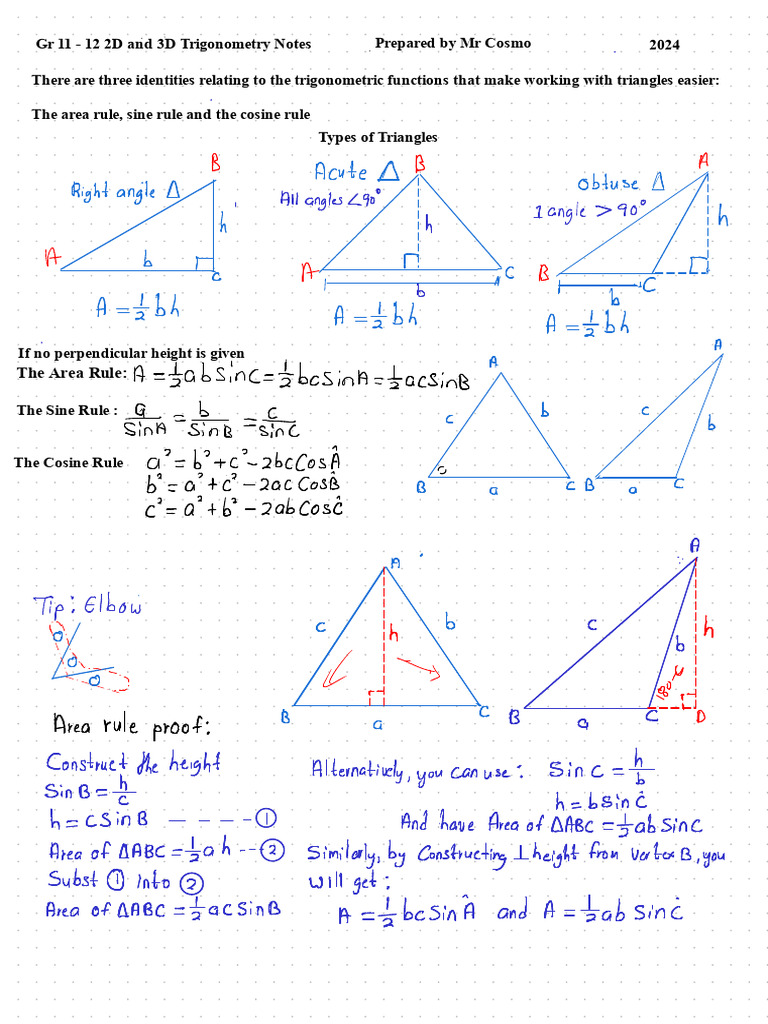 Gr 11 - 12 2D and 3D Trigonometry Notes Prepared by Mr Cosmo 2024
There are three identities relating to the trigonometric functions that make working with triangles easier:
The area rule, sine rule and the cosine rule
Types of Triangles
Right angle Δ
B
h
A
b
C
A = 1/2 bh
Acute Δ
All angles ∠90°
B
h
A
C
b
A = 1/2 bh
Obtuse Δ
1 angle > 90°
A
h
B
C
b
A = 1/2 bh
If no perpendicular height is given
The Area Rule: A = 1/2 ab SinC = 1/2 bc SinA = 1/2 ac SinB
The Sine Rule : a/SinA = b/SinB = c/SinC
The Cosine Rule a² = b² + c² - 2bc Cos Â
b² = a² + c² - 2ac Cos B̂
c² = a² + b² - 2ab Cos Ĉ
A
c
b
B
a
C
A
c
b
B
a
C
Tip: Elbow
A
c
h
b
B
a
C
A
c
b
h
180-C
B
a
C
D
Area rule proof:
Construct the height
Sin B = h/c
h = c Sin B - - - - ①
Area of ΔABC = 1/2 a h - - ②
Subst ① into ②
Area of ΔABC = 1/2 ac Sin B
Alternatively, you can use: Sin C = h/b
h = b Sin Ĉ
And have Area of ΔABC = 1/2 ab Sin C
Similarly, by Constructing ⊥ height from vertex B, you
will get:
A = 1/2 bc Sin Â and A = 1/2 ab Sin Ċ